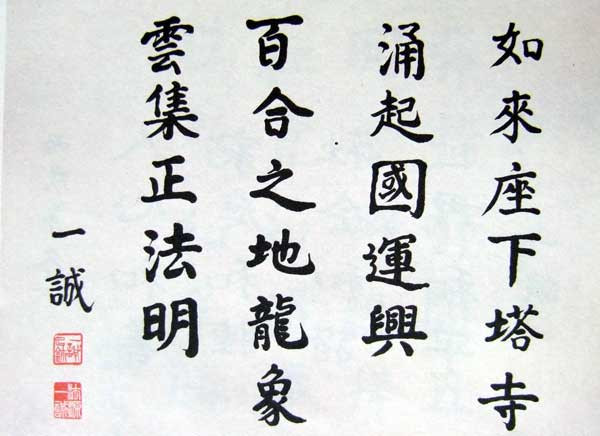 如來座下塔寺
涌起國運興
百合之地龍象
雲集正法明
一誠